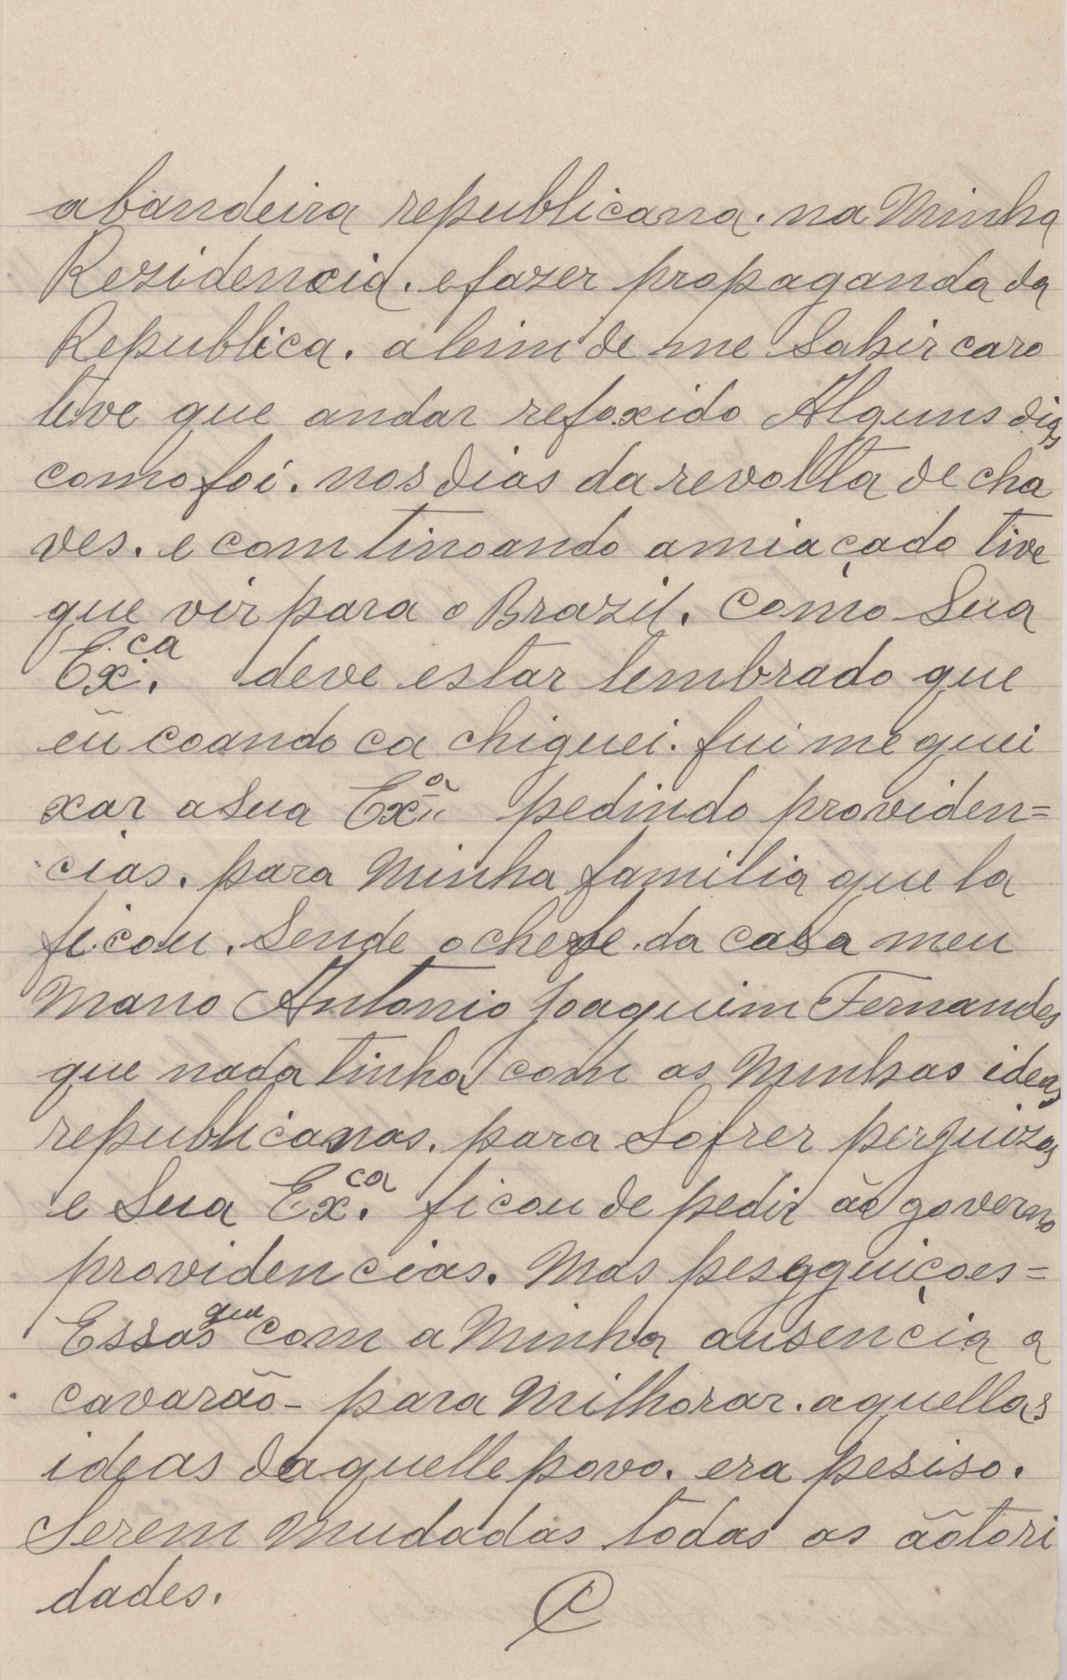 abandeira republicana. na Minha
Rezidencia. efazer propaganda da
Republica. aleim de me Sahir caro
teve que andar refoxido Alguns dias
comofoi. nos dias da revolta de cha
ves. e com tinoando amiaçado tive
que vir para o Brazil. Como Sua
Ex.ca deve estar lembrado que
eũ coando ca chiguei. fui me quei
xar a Sua Ex.a pedindo providen=
cias. para Minha familia que la
ficou. Sende ochefe da casa meu
Mano Antonio Joaquim Fernandes
que nada tinha com as Minhas ideas
republicanas. para Sofrer perguizas
e Sua Ex.ca ficou de pedir ão governo
providencias. Mas pesgguiçoes=
Essas que com a Minha ausencia a
cavarão- para Milhorar. aquellas
ideas daquelle povo. era pesiso.
Serem Mudadas todas as ãotori
dades.